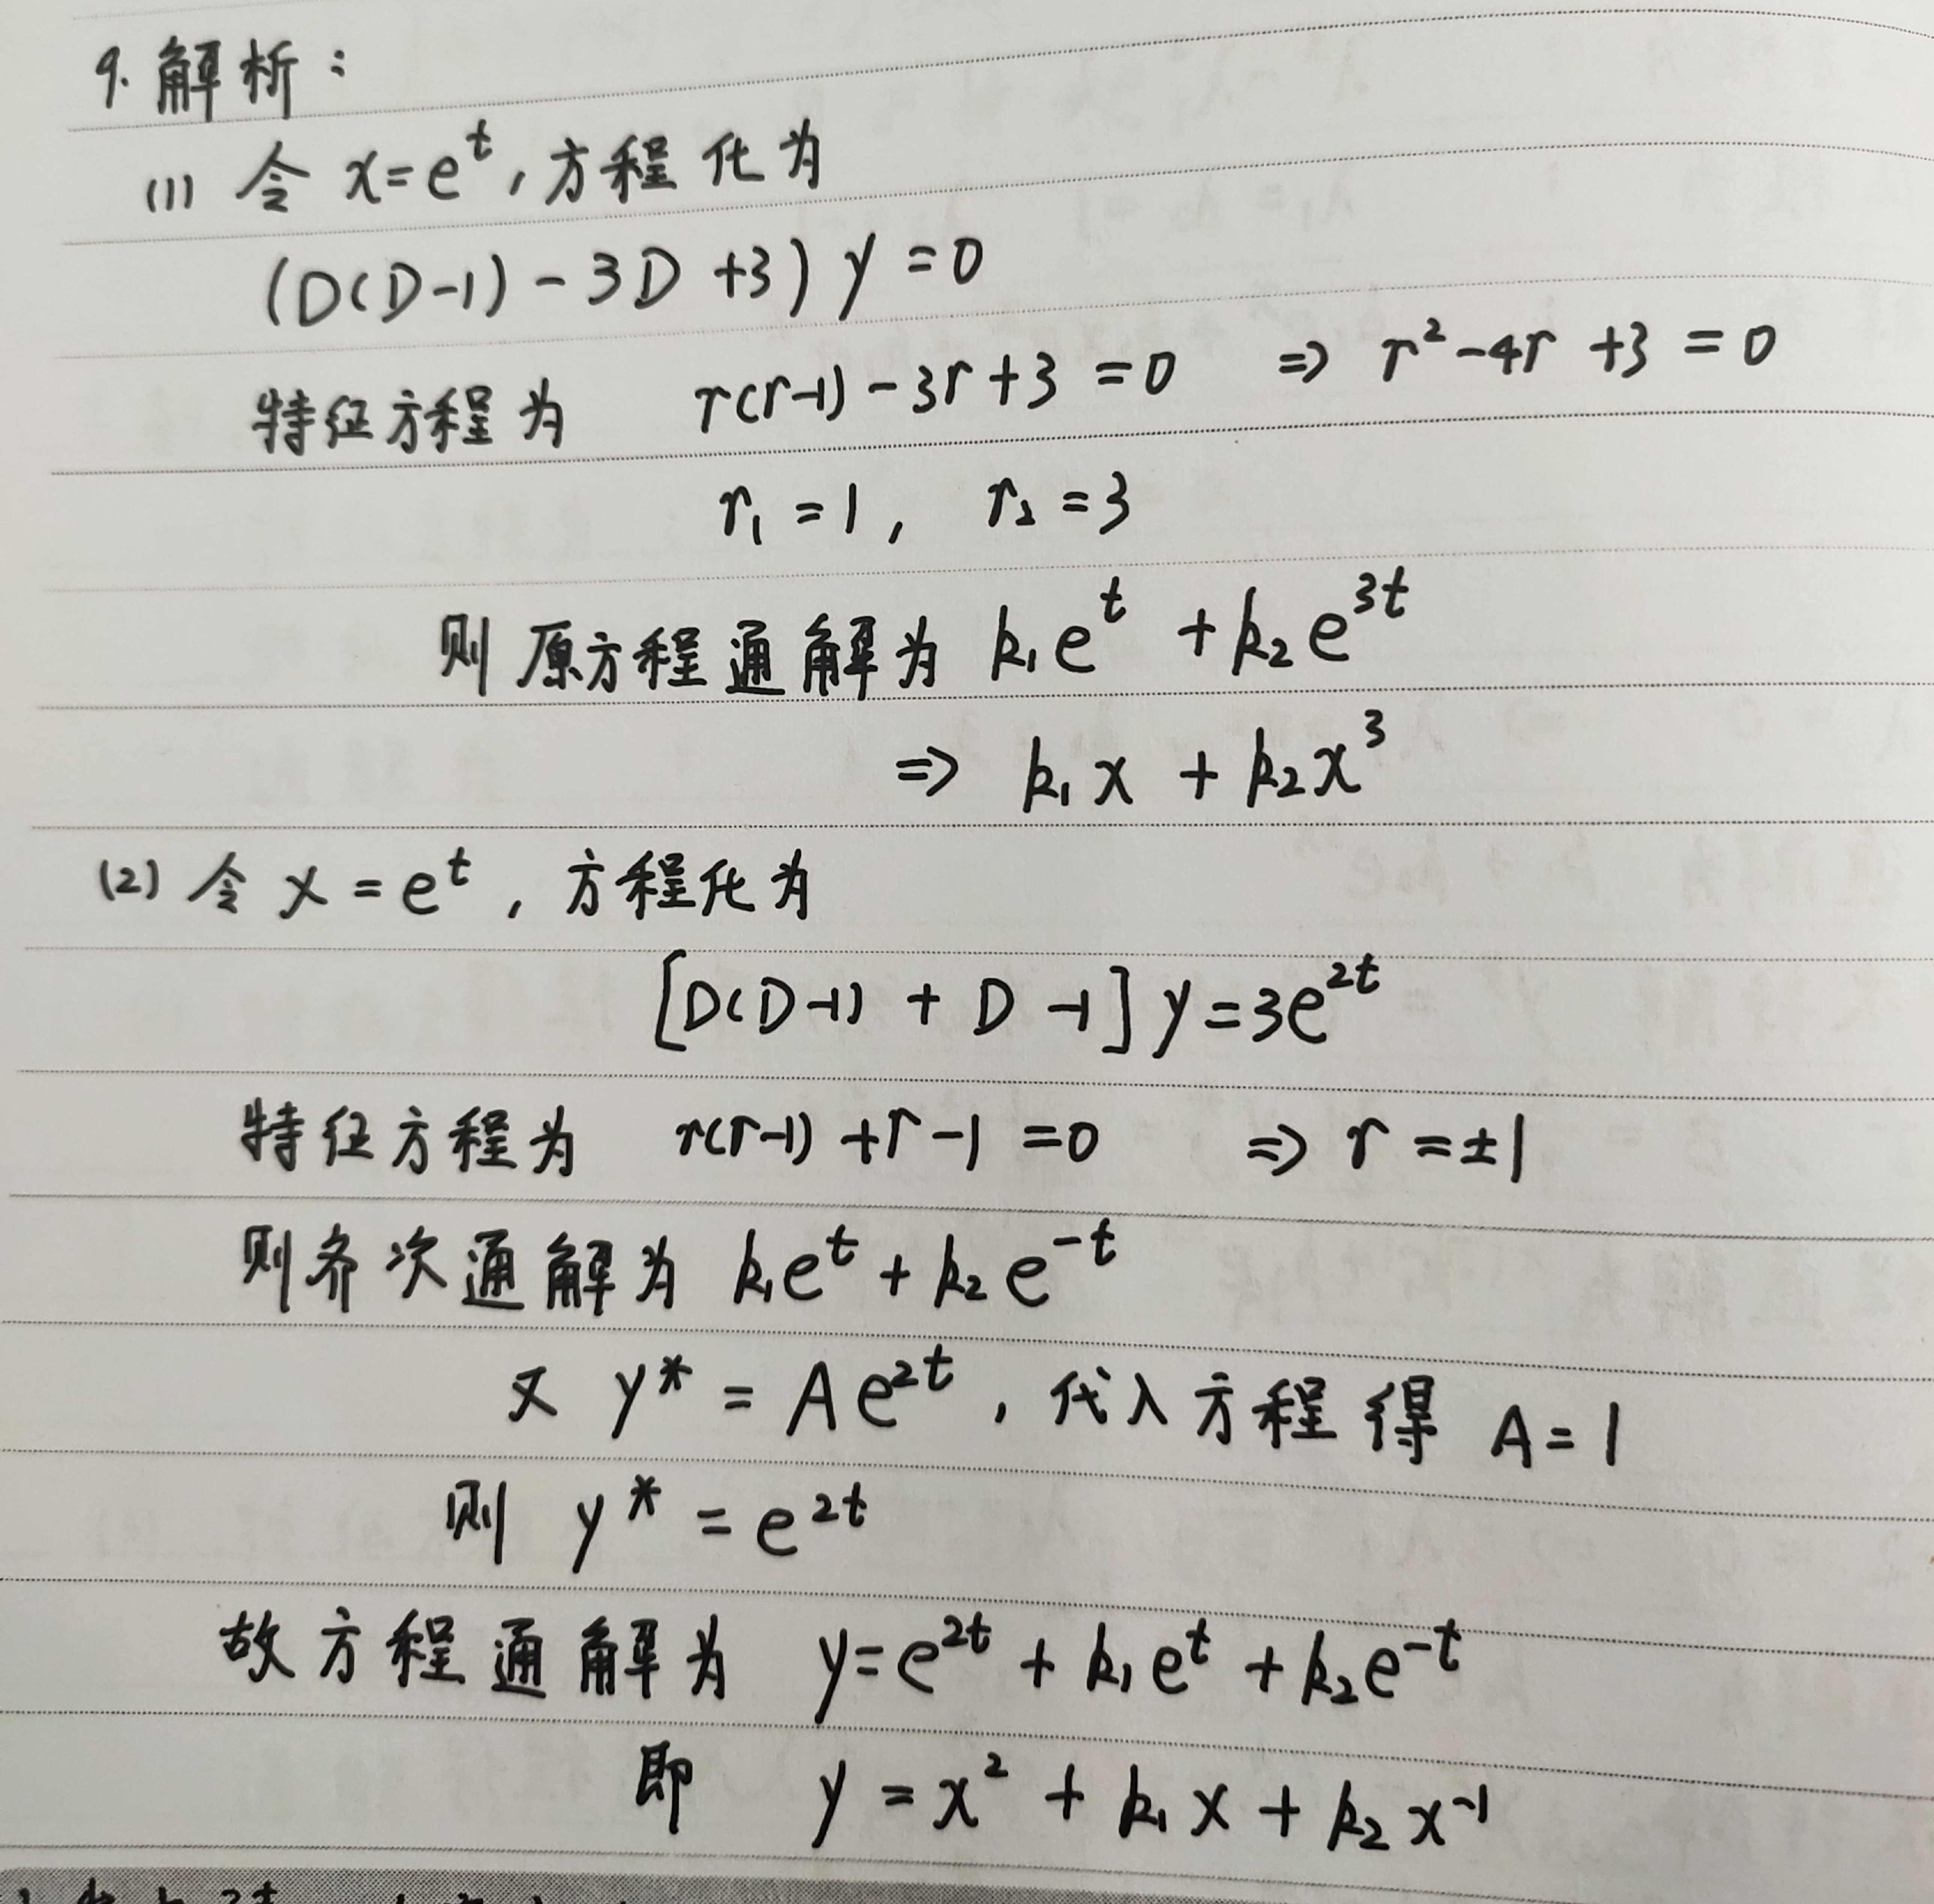 9. 解析：
(1) 令 x=e^t, 方程化为
(D(D-1) - 3D +3) y = 0
特征方程为 r(r-1) - 3r + 3 = 0 ⇒ r² - 4r + 3 = 0
r₁ = 1, r₂ = 3
则原方程通解为 k₁e^t + k₂e^{3t}
⇒ k₁x + k₂x³
(2) 令 x = e^t, 方程化为
[D(D-1) + D -1] y = 3e^{2t}
特征方程为 r(r-1) + r - 1 = 0 ⇒ r = ±1
则齐次通解为 k₁e^t + k₂e^{-t}
又 y* = Ae^{2t}, 代入方程得 A = 1
则 y* = e^{2t}
故方程通解为 y = e^{2t} + k₁e^t + k₂e^{-t}
即 y = x² + k₁x + k₂x^{-1}